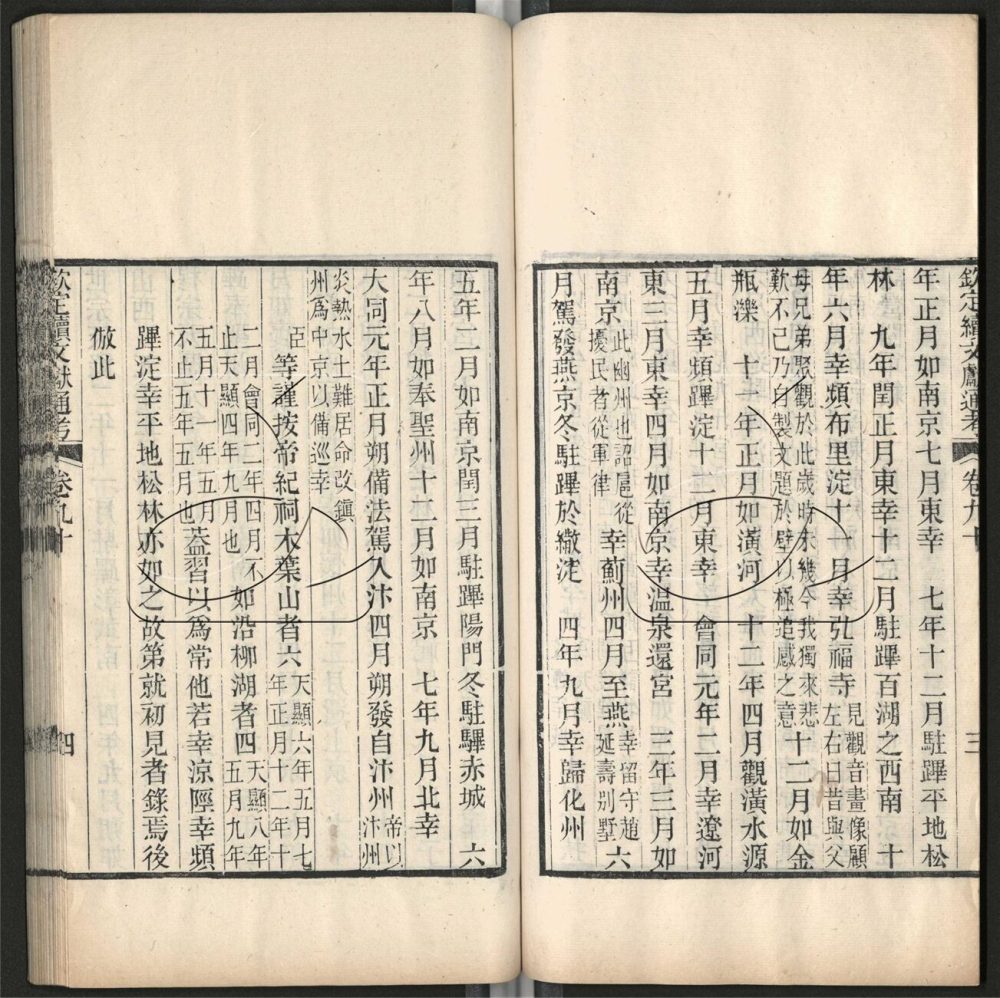 欽定續文獻通考 卷九十 三
年正月如南京七月東幸　七年十二月駐蹕平地松
林　九年閏正月東幸十二月駐蹕百湖之西南　十
年六月幸頻布里淀十一月幸弘福寺見觀音畫像顧左右曰昔與父
母兄弟聚觀於此歲時未幾今我獨來悲歎不已乃自製文題於壁以極追感之意十二月如金
瓶濼　十一年正月如潢河　十二年四月觀潢水源
五月幸頻蹕淀十二月東幸　會同元年二月幸遼河
東三月東幸四月如南京幸温泉還宮　三年三月如
南京此幽州也詔扈從擾民者從軍律幸薊州四月至燕幸留守趙延壽別墅六
月駕發燕京冬駐蹕於繖淀　四年九月幸歸化州
五年二月如南京閏三月駐蹕陽門冬駐驆赤城　六
年八月如奉聖州十二月如南京　七年九月北幸
大同元年正月朔備法駕入汴四月朔發自汴州帝以汴州
炎熱水土難居命改鎮州爲中京以備巡幸
臣等謹按帝紀祠木葉山者六天顯六年五月七年正月十二年十
二月會同二年四月不止天顯四年九月也如沿柳湖者四天顯八年五月九年
五月十一年五月不止五年五月也蓋習以爲常他若幸涼陘幸頻
蹕淀幸平地松林亦如之故第就初見者錄焉後
倣此
欽定續文獻通考 卷九十 四